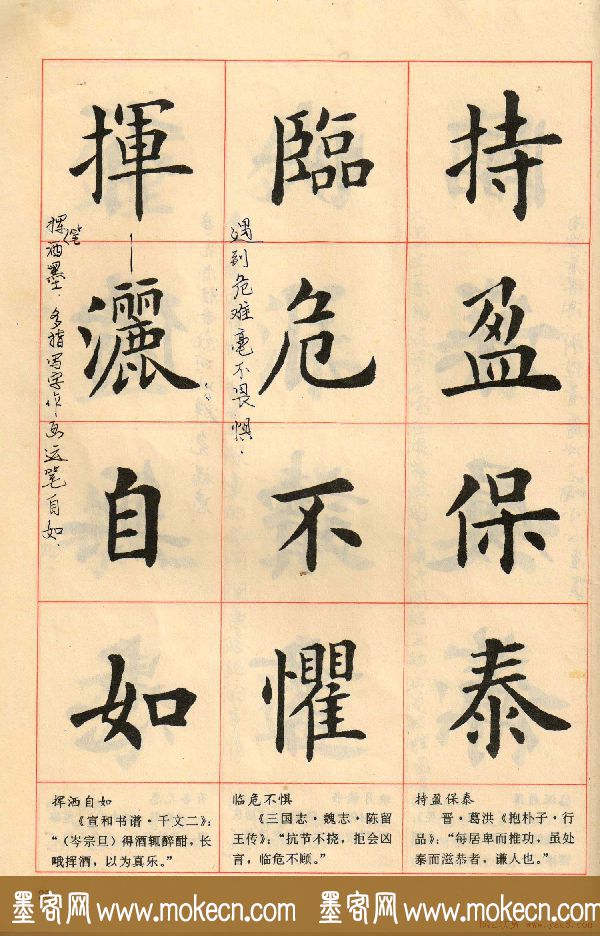 持盈保泰
臨危不懼
揮灑自如
遇到危难毫不畏惧.
挥洒墨.多指写字作画运笔自如.
笔
持盈保泰
晋·葛洪《抱朴子·行
品》:“每居卑而推功,虽处
泰而滋恭者,谦人也。”
临危不惧
《三国志·魏志·陈留
王传》:“抗节不挠,拒会凶
言,临危不顾。”
挥洒自如
《宣和书谱·千文二》:
“(岑宗旦)得酒辄醉酣,长
哦挥洒,以为真乐。”
墨客网 www.mokecn.com 墨客网 www.mokecn.com